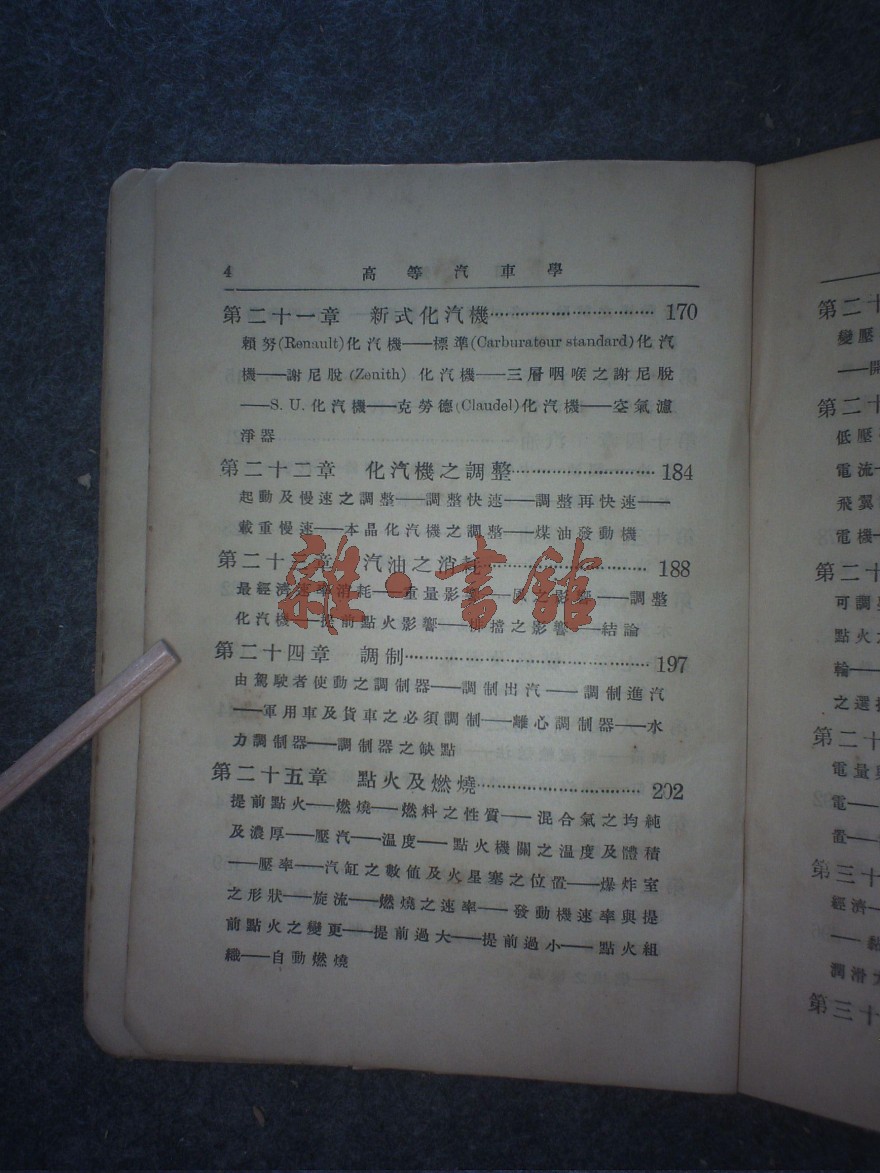 4 高等汽車學
第二十一章 新式化汽機 170
賴努(Renault)化汽機——標準(Carburateur standard)化汽
機——謝尼脫(Zenith) 化汽機——三層咽喉之謝尼脫
——S. U. 化汽機——克勞德(Claudel)化汽機——空氣濾
淨器
第二十二章 化汽機之調整 184
起動及慢速之調整——調整快速——調整再快速——
載重慢速——本晶化汽機之調整——煤油發動機
第二十三章 汽油之消耗 188
最經濟速率消耗——重量影響——風之影響——調整
化汽機——提前點火影響——排擋之影響——結論
第二十四章 調制 197
由駕駛者使動之調制器——調制出汽——調制進汽
——軍用車及貨車之必須調制——離心調制器——水
力調制器——調制器之缺點
第二十五章 點火及燃燒 202
提前點火——燃燒——燃料之性質——混合氣之均純
及濃厚——壓汽——温度——點火機關之温度及體積
——壓率——汽缸之數値及火星塞之位置——爆炸室
之形狀——旋流——燃燒之速率——發動機速率與提
前點火之變更——提前過大——提前過小——點火組
織——自動燃燒
雜·書館
第二十
變壓
——開
第二十
低壓
電流
飛翼
電機
第二十
可調
點火
輪——
之選
第二十
電量
電——
置——
第三十
經濟
——
潤滑
第三十